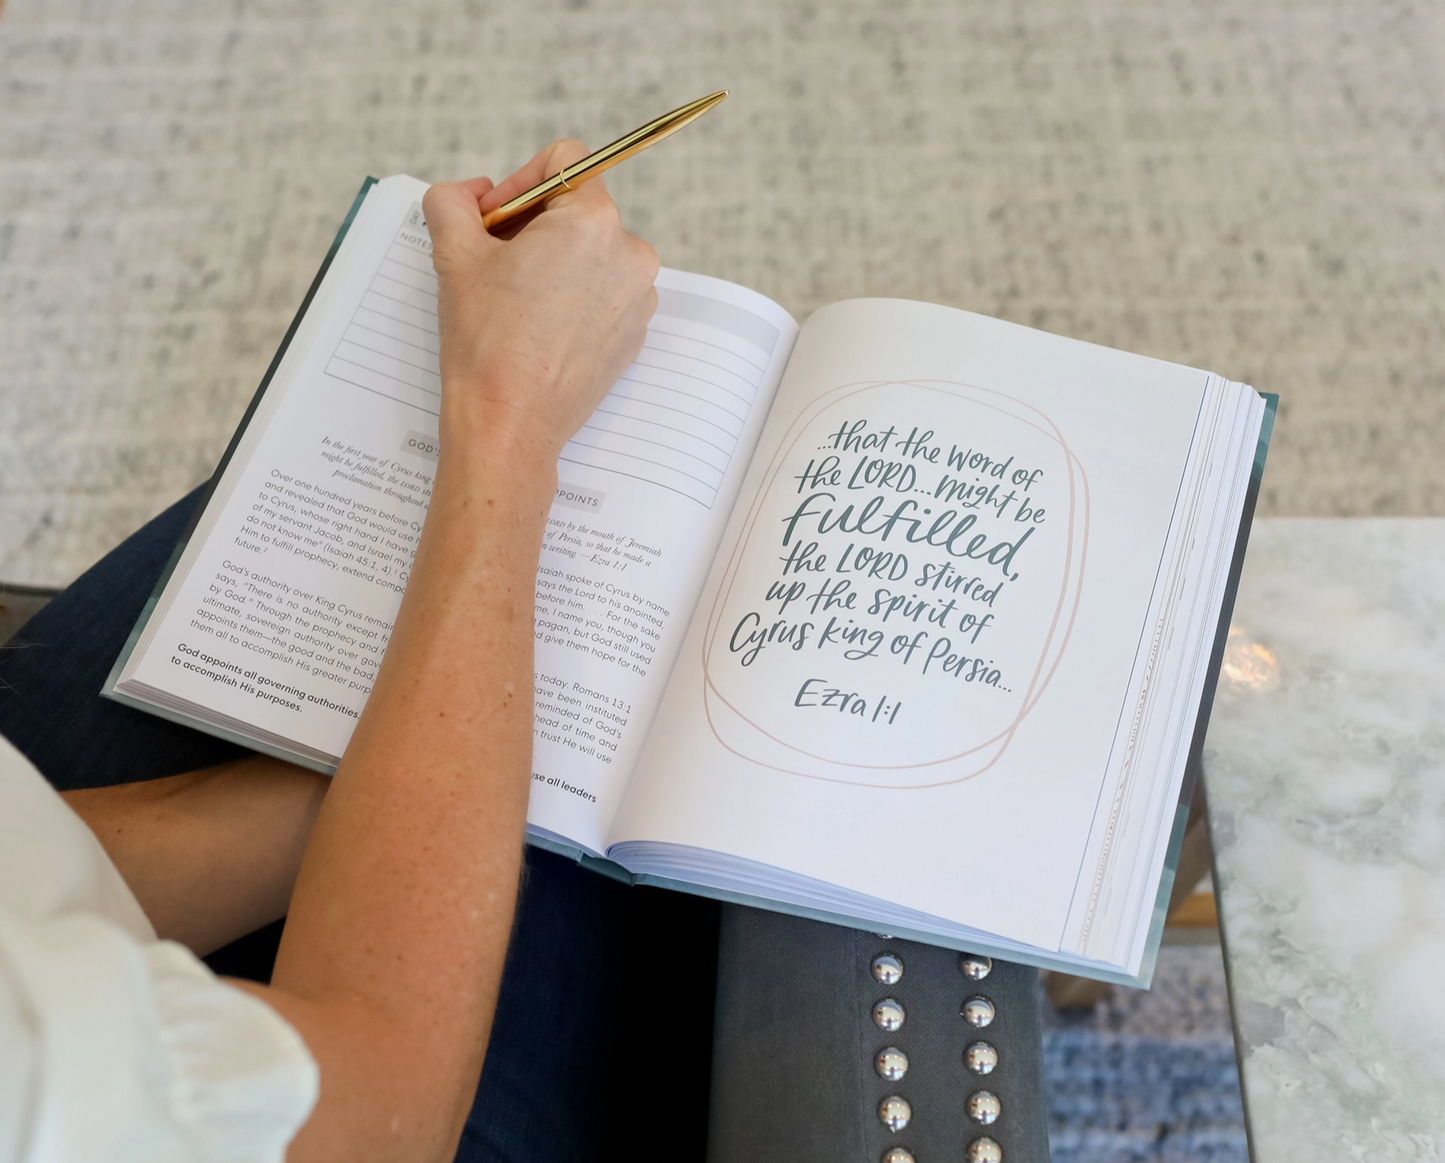 DAY
NOTES
GOD'S
APPOINTS
In the first year of Cyrus king
LORD by the mouth of Jeremiah
might be fulfilled, the LORD
of Persia, so that he made a
proclamation throughout
in writing —Ezra 1:1
Over one hundred years before
Isaiah spoke of Cyrus by name
and revealed that God would use
says the Lord to his anointed,
to Cyrus, whose right hand I have
before him. . . . For the sake
of my servant Jacob, and Israel my
me, I name you, though you
do not know me" (Isaiah 45:1, 4).¹
pagan, but God still used
Him to fulfill prophecy, extend
give them hope for the
future.²
God's authority over King Cyrus
today. Romans 13:1
says, "There is no authority except
have been instituted
by God." Through the prophecy and
reminded of God's
ultimate, sovereign authority over
head of time and
appoints them—the good and the bad,
trust He will use
them all to accomplish His greater
God appoints all governing authorities.
use all leaders
to accomplish His purposes.
...that the word of
the LORD...might be
fulfilled,
the LORD stirred
up the spirit of
Cyrus king of Persia...
Ezra 1:1